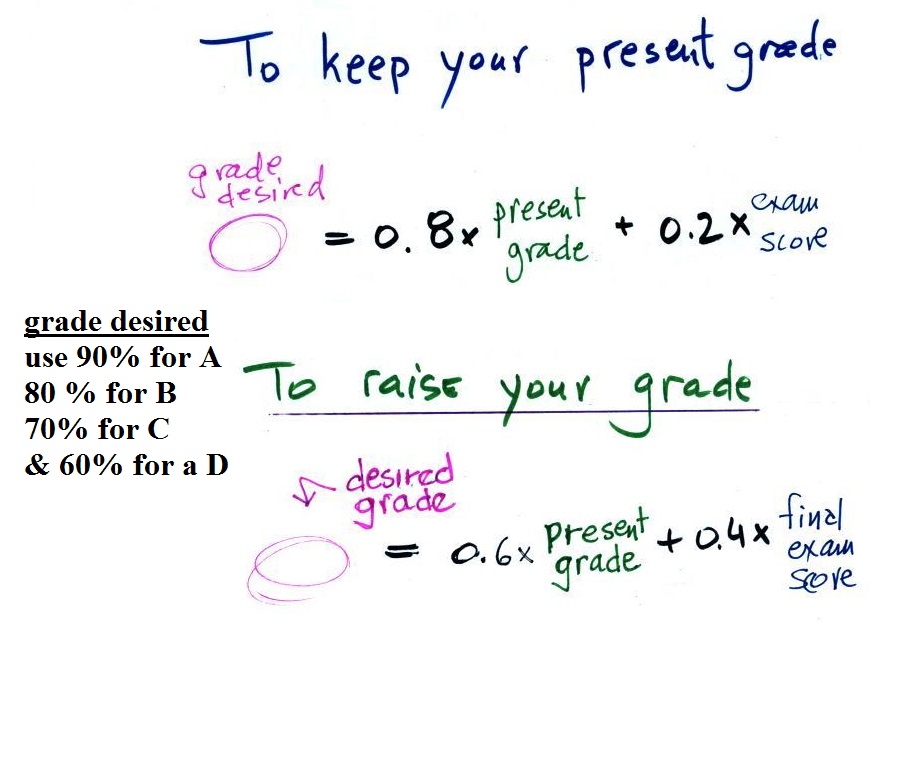 To keep your present grade
grade desired
= 0.8x present grade + 0.2x exam score
grade desired
use 90% for A
80 % for B
70% for C
& 60% for a D
To raise your grade
desired grade
= 0.6x present grade + 0.4x final exam score